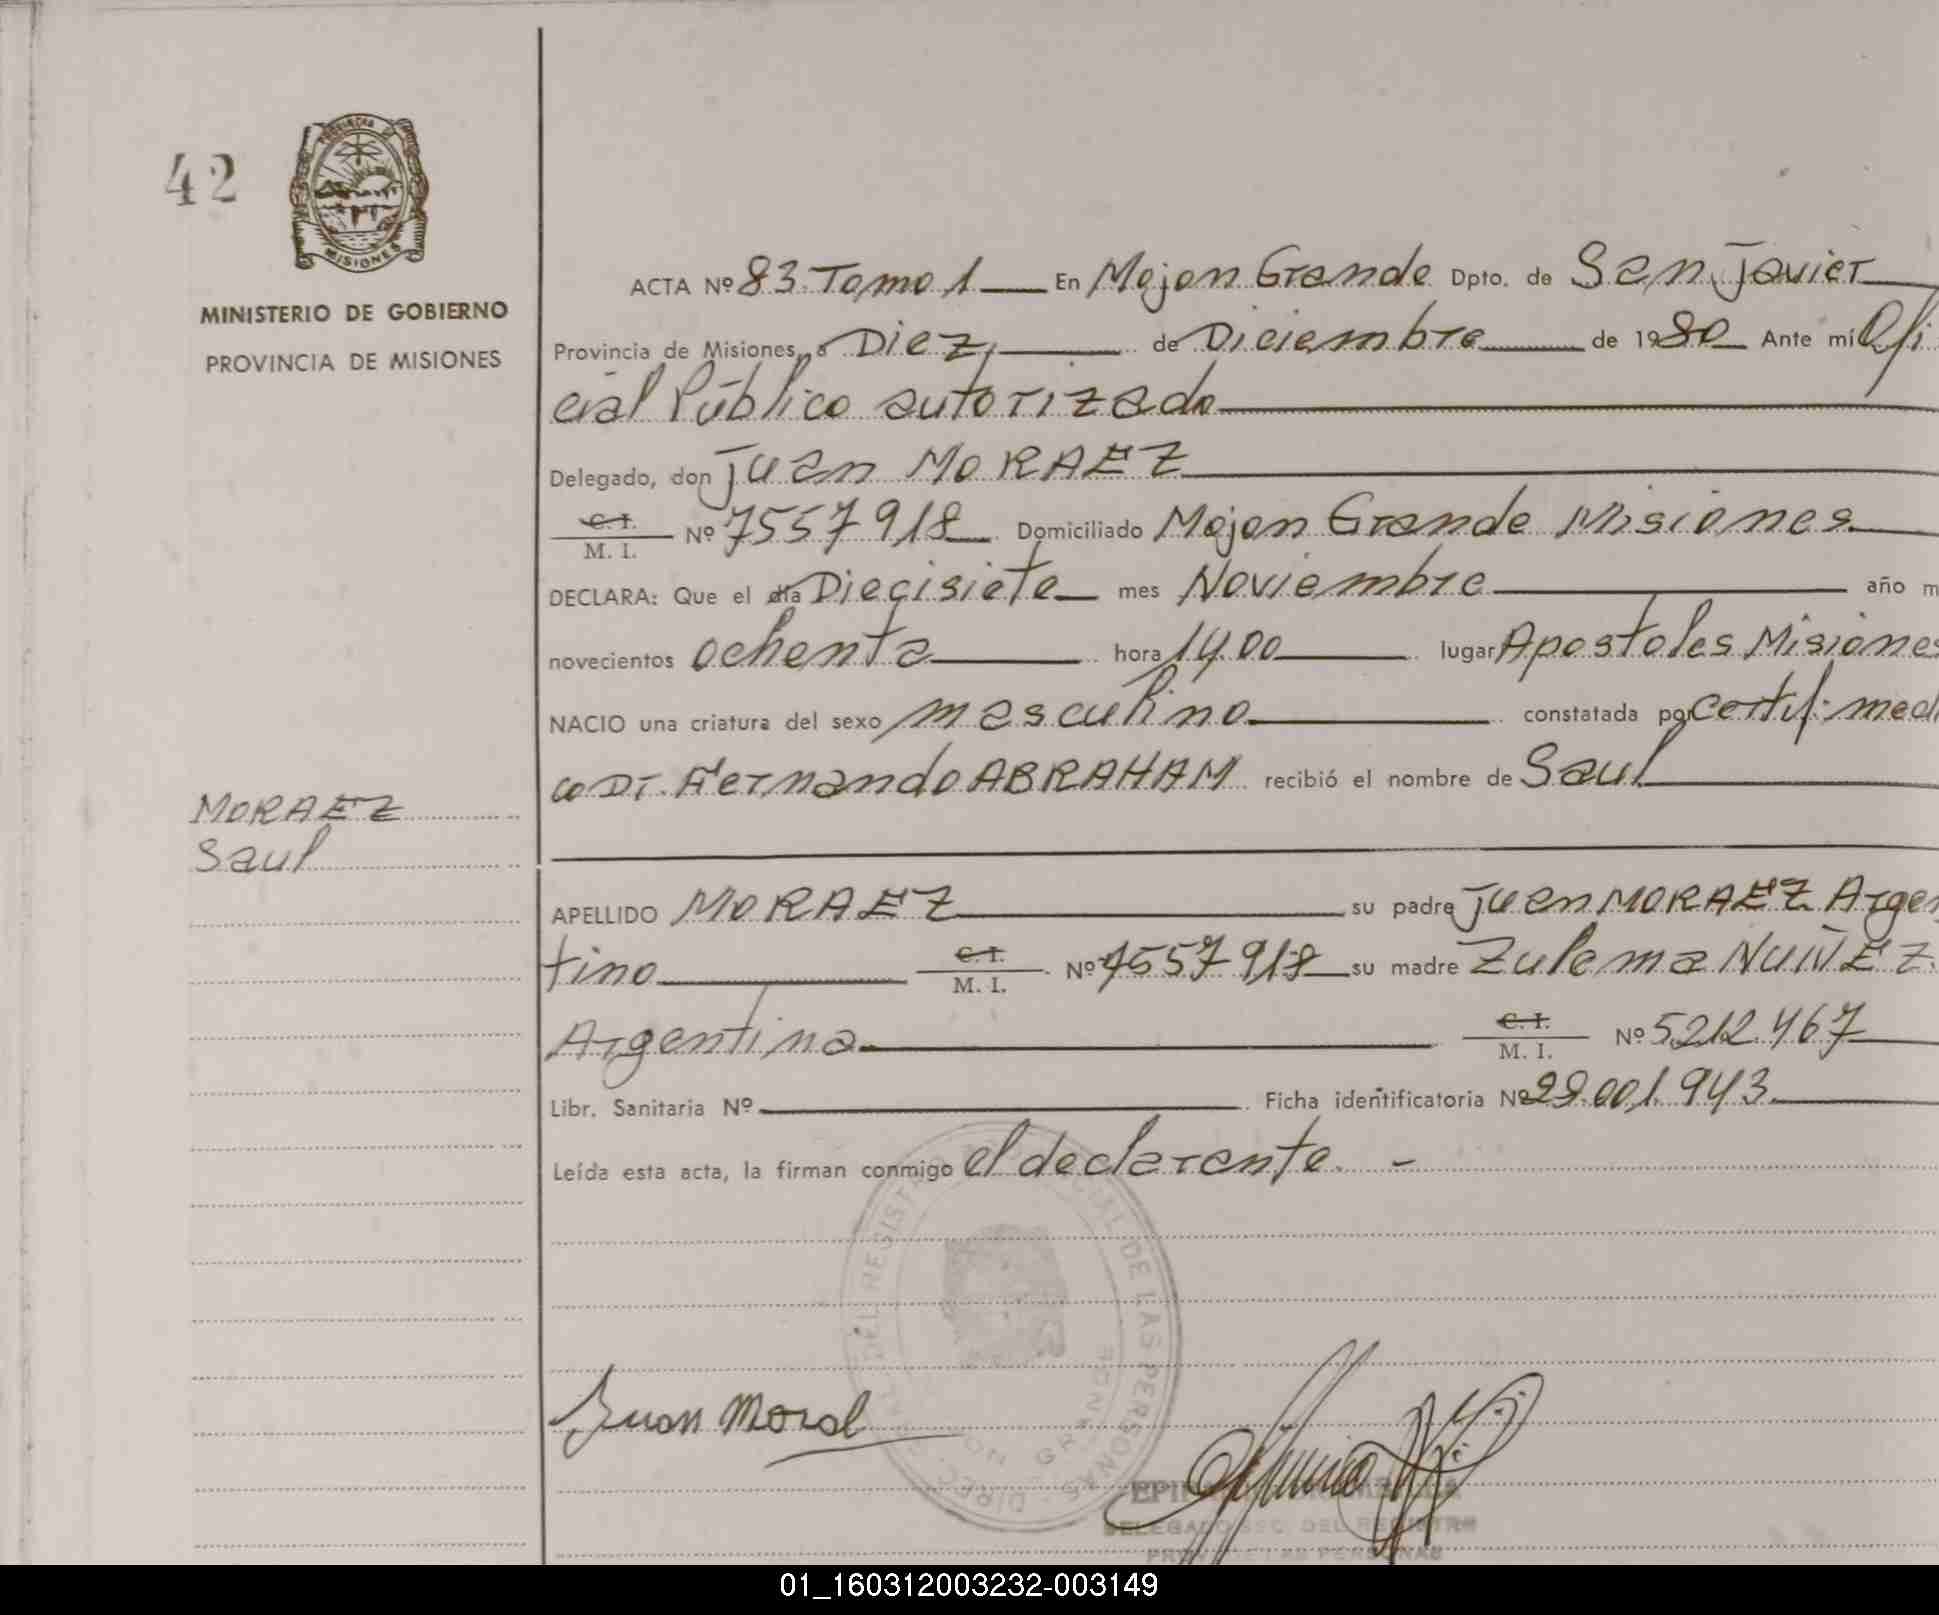 42
PROVINCIA DE
MISIONES
MINISTERIO DE GOBIERNO
PROVINCIA DE MISIONES
MORAEZ
Saul
ACTA Nº 83 Tomo 1 En Mojon Grande Dpto. de San Javier
Provincia de Misiones, a Diez, de Diciembre de 1980 Ante mí Ofi
cial Público autorizado
Delegado, don Juan MORAEZ
C. I.
M. I. Nº 7557918 Domiciliado Mojon Grande Misiones
DECLARA: Que el día Diecisiete mes Noviembre año m
novecientos ochenta hora 14.00 lugar Apostoles Misiones
NACIO una criatura del sexo masculino constatada por certif. medi
co Dr. Fernando ABRAHAM recibió el nombre de Saul
APELLIDO MORAEZ su padre Juan MORAEZ Argen
tino C. I.
M. I. Nº 7557918 su madre Zulema NUÑEZ.
Argentina C. I.
M. I. Nº 5.212.467
Libr. Sanitaria Nº Ficha identificatoria Nº 29.001.943
Leída esta acta, la firman conmigo el declarante. -
DEL REGISTRO DE LAS PERSONAS - DIREC.
ON GRANDE
Juan Moral
DELEGADO DEL REGISTRO
PROV. DE LAS PERSONAS
01_160312003232-003149